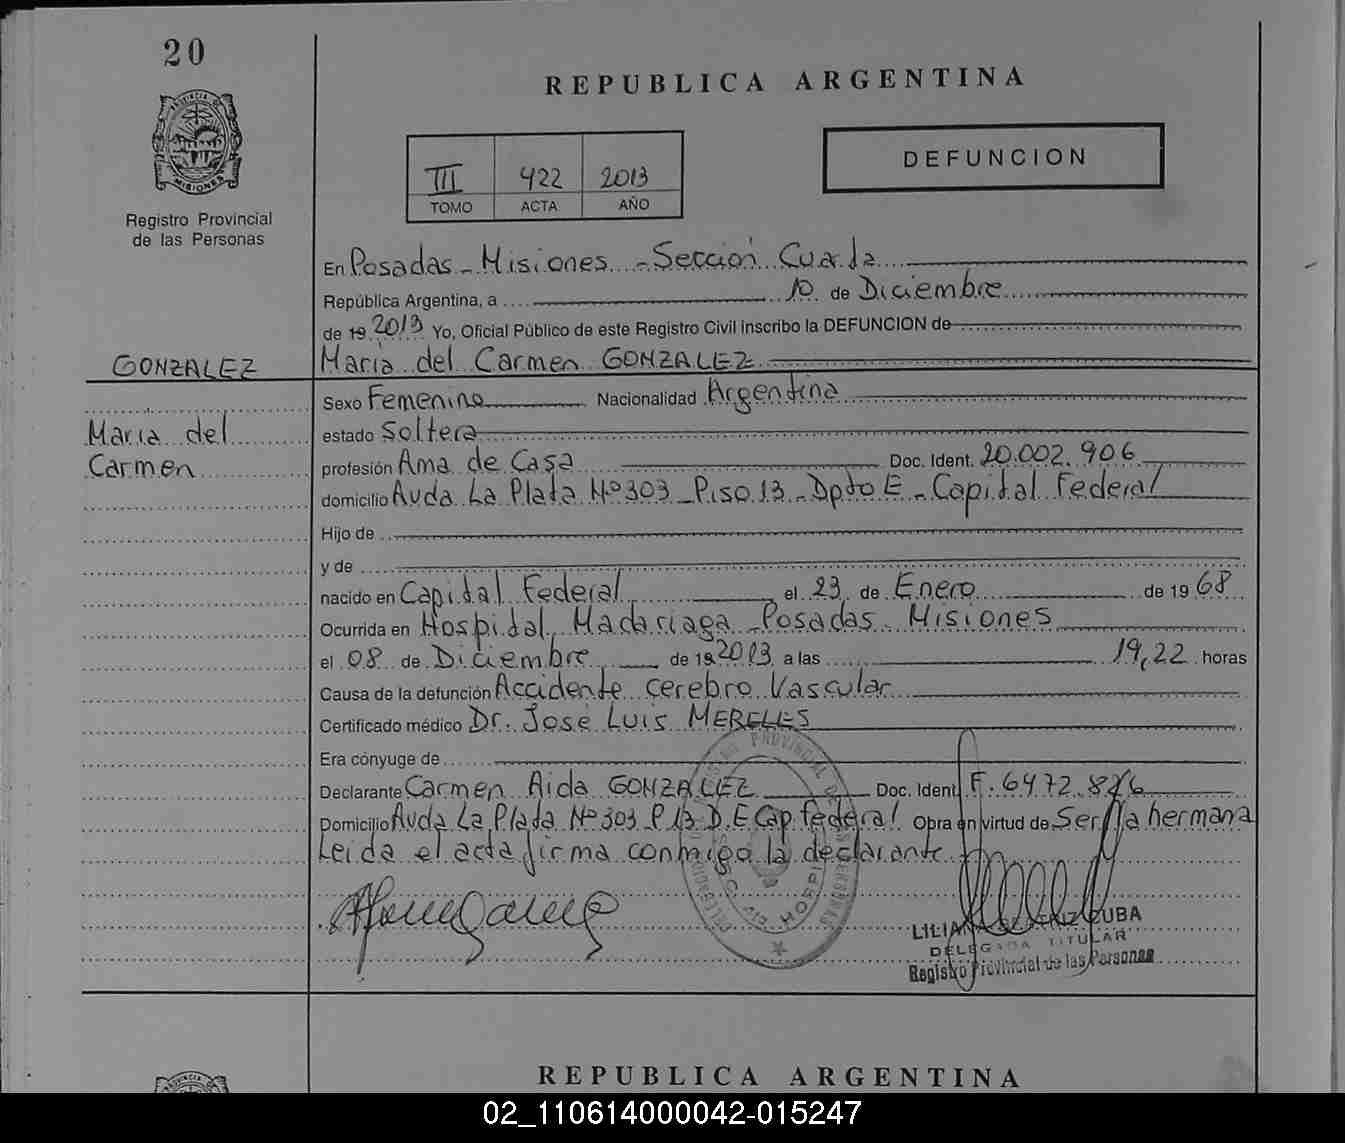 20
REPUBLICA ARGENTINA
DEFUNCION
III 422 2013
TOMO ACTA AÑO
PROVINCIA DE
MISIONES
Registro Provincial
de las Personas
En Posadas - Misiones - Sección Cuarta
República Argentina, a 10 de Diciembre
de 19 2013 Yo, Oficial Público de este Registro Civil inscribo la DEFUNCION de
GONZALEZ
María del Carmen GONZALEZ
Sexo Femenino Nacionalidad Argentina
María del
estado Soltera
Carmen
profesión Ama de Casa Doc. Ident. 20.002.906
domicilio Avda La Plata Nº 303 - Piso 13 - Dpto E - Capital Federal
Hijo de
y de
nacido en Capital Federal el 23 de Enero de 1968
Ocurrida en Hospital Madariaga - Posadas - Misiones
el 08 de Diciembre de 19 2013 a las 19,22 horas
Causa de la defunción Accidente cerebro Vascular
Certificado médico Dr. José Luis MERELES
Era cónyuge de
Declarante Carmen Aida GONZALEZ Doc. Ident. F. 6472.826
Domicilio Avda La Plata Nº 303 P 13 D.E Cap federal Obra en virtud de Ser la hermana
Leida el acta firma conmigo la declarante
DELEGADA TITULAR
Registro Provincial de las Personas
REPUBLICA ARGENTINA
02_110614000042-015247